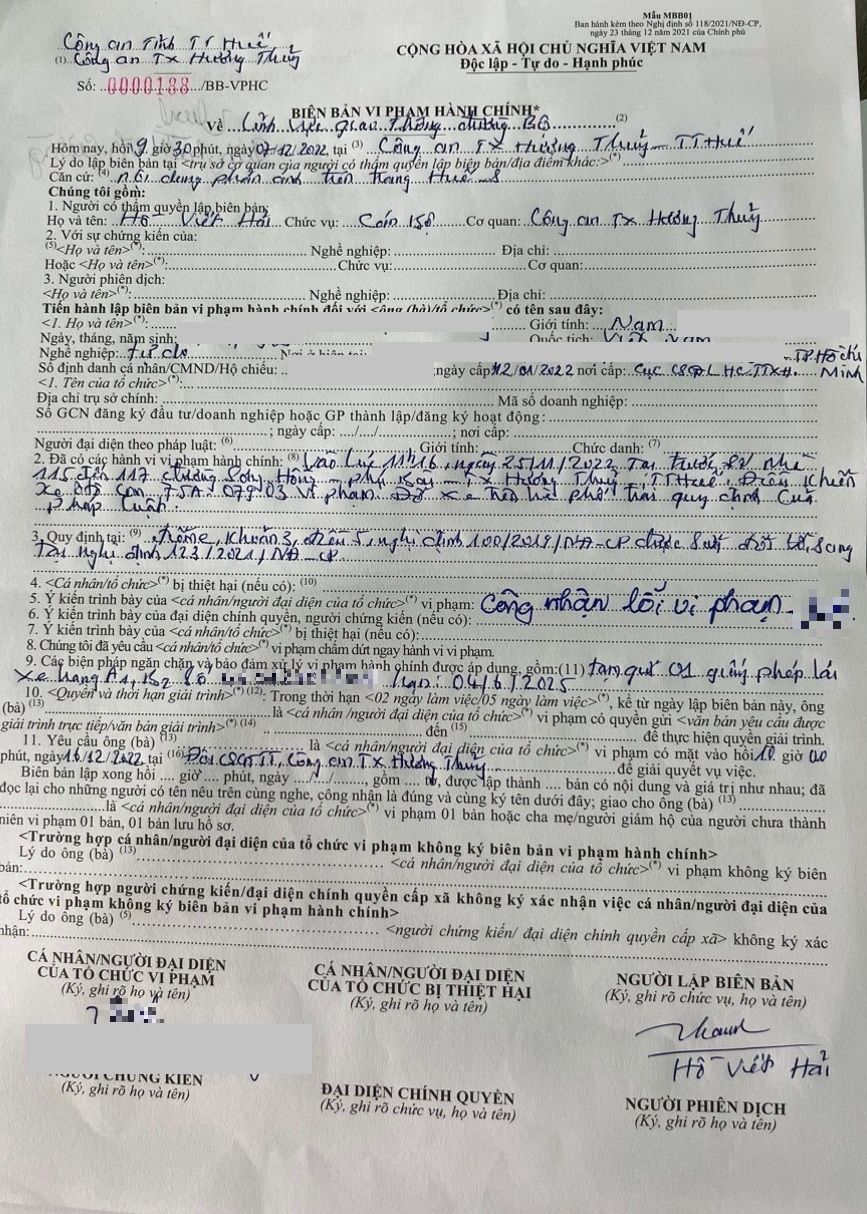 Mẫu MBB01
Ban hành kèm theo Nghị định số 118/2021/NĐ-CP,
ngày 23 tháng 12 năm 2021 của Chính phủ
Công an Tỉnh TT Huế
(1) Công an TX Hương Thủy
CỘNG HÒA XÃ HỘI CHỦ NGHĨA VIỆT NAM
Độc lập - Tự do - Hạnh phúc
Số: 0000188 /BB-VPHC
BIÊN BẢN VI PHẠM HÀNH CHÍNH*
Về Lĩnh vực giao thông đường BỘ (2)
Hôm nay, hồi 9 giờ 30 phút, ngày 07/12/2022 tại (3) Công an TX Hương Thủy - TT Huế
Lý do lập biên bản tại <trụ sở cơ quan của người có thẩm quyền lập biên bản/địa điểm khác:>(*)
Căn cứ: (4) nội dung phản ánh trên trang Huế - S
Chúng tôi gồm:
1. Người có thẩm quyền lập biên bản:
Họ và tên: Hồ Viết Hải Chức vụ: Cán bộ Cơ quan: Công an TX Hương Thủy
2. Với sự chứng kiến của:
(5)<Họ và tên>(*): Nghề nghiệp: Địa chỉ:
Hoặc <Họ và tên>(*): Chức vụ: Cơ quan:
3. Người phiên dịch:
<Họ và tên>(*): Nghề nghiệp: Địa chỉ:
Tiến hành lập biên bản vi phạm hành chính đối với <ông (bà)/tổ chức>(*) có tên sau đây:
<1. Họ và tên>(*): Giới tính: Nam
Ngày, tháng, năm sinh: Quốc tịch: Việt Nam
Nghề nghiệp: Tự do Nơi ở hiện tại: TP Hồ Chí Minh
Số định danh cá nhân/CMND/Hộ chiếu: ngày cấp 12/01/2022 nơi cấp: Cục CSQLHCTTXH
<1. Tên của tổ chức>(*):
Địa chỉ trụ sở chính: Mã số doanh nghiệp:
Số GCN đăng ký đầu tư/doanh nghiệp hoặc GP thành lập/đăng ký hoạt động:
; ngày cấp: / / ; nơi cấp:
Người đại diện theo pháp luật: (6) Giới tính: Chức danh: (7)
2. Đã có các hành vi vi phạm hành chính: (8) Vào lúc 11h16, ngày 25/11/2022 Tại trước số nhà
115 đến 117 đường Sóng Hồng - Phú Bài - TX Hương Thủy, TT Huế, Điều khiển
xe ôtô con 75A-079.03 Vi phạm Đỗ xe trên hè phố trái quy định của
Pháp Luật.
3. Quy định tại: (9) điểm e, khoản 3, điều 5, nghị định 100/2019/NĐ-CP được sửa đổi bổ sung
tại nghị định 123/2021/NĐ-CP
4. <Cá nhân/tổ chức>(*) bị thiệt hại (nếu có): (10)
5. Ý kiến trình bày của <cá nhân/người đại diện của tổ chức>(*) vi phạm: Công nhận lỗi vi phạm
6. Ý kiến trình bày của đại diện chính quyền, người chứng kiến (nếu có):
7. Ý kiến trình bày của <cá nhân/tổ chức>(*) bị thiệt hại (nếu có):
8. Chúng tôi đã yêu cầu <cá nhân/tổ chức>(*) vi phạm chấm dứt ngay hành vi vi phạm.
9. Các biện pháp ngăn chặn và bảo đảm xử lý vi phạm hành chính được áp dụng, gồm:(11) tạm giữ 01 giấy phép lái
xe hạng A1, B2 Số Hạn: 04/6/2025
10. <Quyền và thời hạn giải trình>(*) (12): Trong thời hạn <02 ngày làm việc/05 ngày làm việc>(*), kể từ ngày lập biên bản này, ông
(bà) (13) là <cá nhân /người đại diện của tổ chức>(*) vi phạm có quyền gửi <văn bản yêu cầu được
giải trình trực tiếp/văn bản giải trình>(*) (14) đến (15) để thực hiện quyền giải trình.
11. Yêu cầu ông (bà) (13) là <cá nhân/người đại diện của tổ chức>(*) vi phạm có mặt vào hồi 10 giờ 00
phút, ngày 16/12/2022 tại (16) Đội CSGTTT, Công an TX Hương Thủy để giải quyết vụ việc.
Biên bản lập xong hồi giờ phút, ngày / / , gồm tờ, được lập thành bản có nội dung và giá trị như nhau; đã
đọc lại cho những người có tên nêu trên cùng nghe, công nhận là đúng và cùng ký tên dưới đây; giao cho ông (bà) (13)
là <cá nhân/người đại diện của tổ chức>(*) vi phạm 01 bản hoặc cha mẹ/người giám hộ của người chưa thành
niên vi phạm 01 bản, 01 bản lưu hồ sơ.
<Trường hợp cá nhân/người đại diện của tổ chức vi phạm không ký biên bản vi phạm hành chính>
Lý do ông (bà) (13) <cá nhân/người đại diện của tổ chức>(*) vi phạm không ký biên
bản:
<Trường hợp người chứng kiến/đại diện chính quyền cấp xã không ký xác nhận việc cá nhân/người đại diện của
tổ chức vi phạm không ký biên bản vi phạm hành chính>
Lý do ông (bà) (5) <người chứng kiến/ đại diện chính quyền cấp xã> không ký xác
nhận:
CÁ NHÂN/NGƯỜI ĐẠI DIỆN
CỦA TỔ CHỨC VI PHẠM
(Ký, ghi rõ họ và tên)
CÁ NHÂN/NGƯỜI ĐẠI DIỆN
CỦA TỔ CHỨC BỊ THIỆT HẠI
(Ký, ghi rõ họ và tên)
NGƯỜI LẬP BIÊN BẢN
(Ký, ghi rõ chức vụ, họ và tên)
Hồ Viết Hải
NGƯỜI CHỨNG KIẾN
(Ký, ghi rõ họ và tên)
ĐẠI DIỆN CHÍNH QUYỀN
(Ký, ghi rõ chức vụ, họ và tên)
NGƯỜI PHIÊN DỊCH
(Ký, ghi rõ họ và tên)